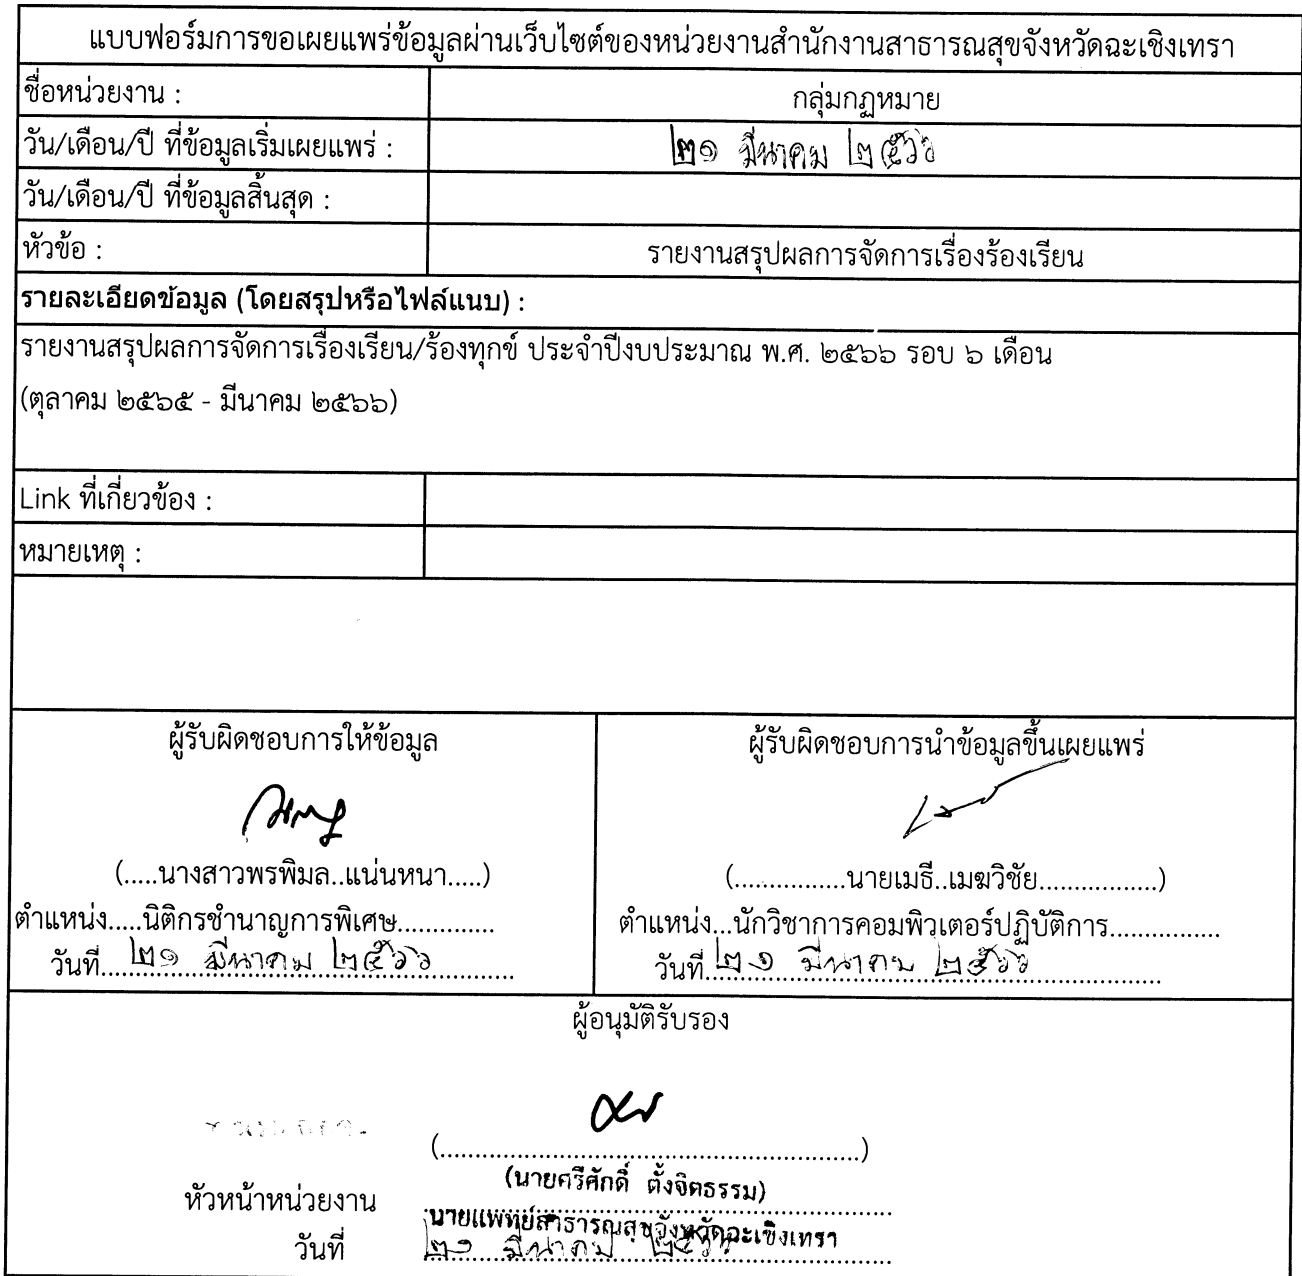 แบบฟอร์มการขอเผยแพร่ข้อมูลผ่านเว็บไซต์ของหน่วยงานสำนักงานสาธารณสุขจังหวัดฉะเชิงเทรา
ชื่อหน่วยงาน : กลุ่มกฎหมาย
วัน/เดือน/ปี ที่ข้อมูลเริ่มเผยแพร่ : ๒๑ มีนาคม ๒๕๖๖
วัน/เดือน/ปี ที่ข้อมูลสิ้นสุด :
หัวข้อ : รายงานสรุปผลการจัดการเรื่องร้องเรียน
รายละเอียดข้อมูล (โดยสรุปหรือไฟล์แนบ) :
รายงานสรุปผลการจัดการเรื่องเรียน/ร้องทุกข์ ประจำปีงบประมาณ พ.ศ. ๒๕๖๖ รอบ ๖ เดือน
(ตุลาคม ๒๕๖๕ - มีนาคม ๒๕๖๖)
Link ที่เกี่ยวข้อง :
หมายเหตุ :
ผู้รับผิดชอบการให้ข้อมูล
(.....นางสาวพรพิมล..แน่นหนา.....)
ตำแหน่ง.....นิติกรชำนาญการพิเศษ..............
วันที่ ๒๑ มีนาคม ๒๕๖๖
ผู้รับผิดชอบการนำข้อมูลขึ้นเผยแพร่
(................นายเมธี..เมฆวิชัย.................)
ตำแหน่ง...นักวิชาการคอมพิวเตอร์ปฏิบัติการ................
วันที่ ๒๑ มีนาคม ๒๕๖๖
ผู้อนุมัติรับรอง
(............................................................)
(นายศรีศักดิ์ ตั้งจิตธรรม)
หัวหน้าหน่วยงาน
นายแพทย์สาธารณสุขจังหวัดฉะเชิงเทรา
วันที่ ๒๑ มีนาคม ๒๕๖๖